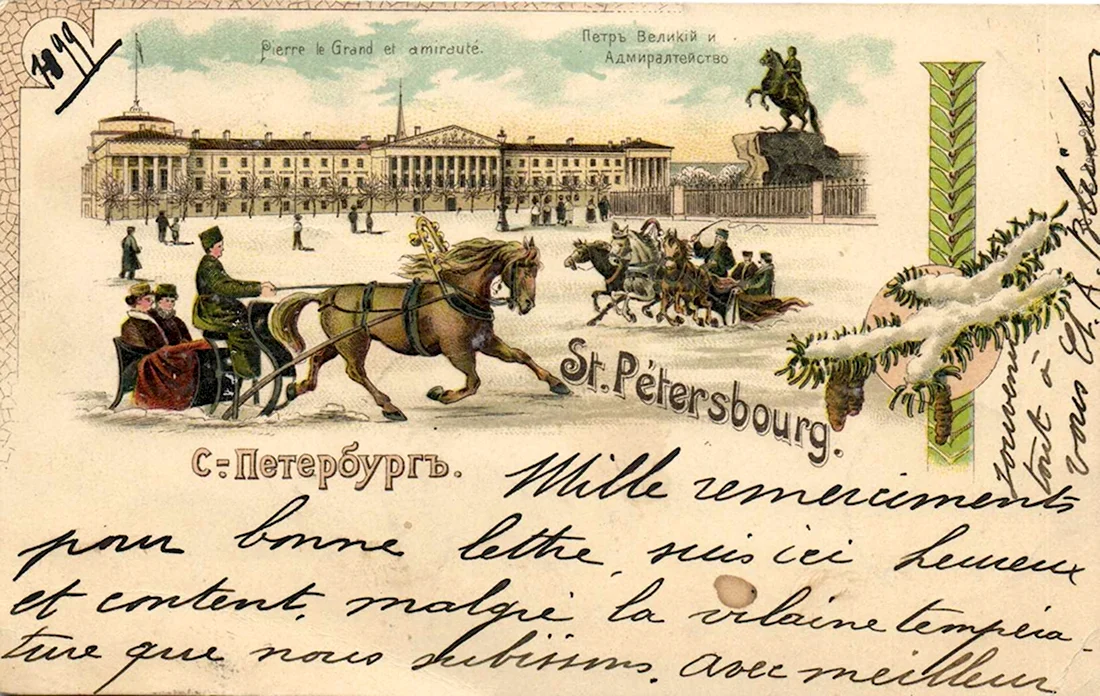 1899
Pierre le Grand et amirauté.
Петръ Великій и
Адмиралтейство
St. Pétersbourg.
С.-Петербургъ.
Mille remerciments
pour bonne lettre, suis ici heureux
et content, malgré la vilaine tempéra
ture que nous subissons. Avec meilleur
souvenir
tout à
vous